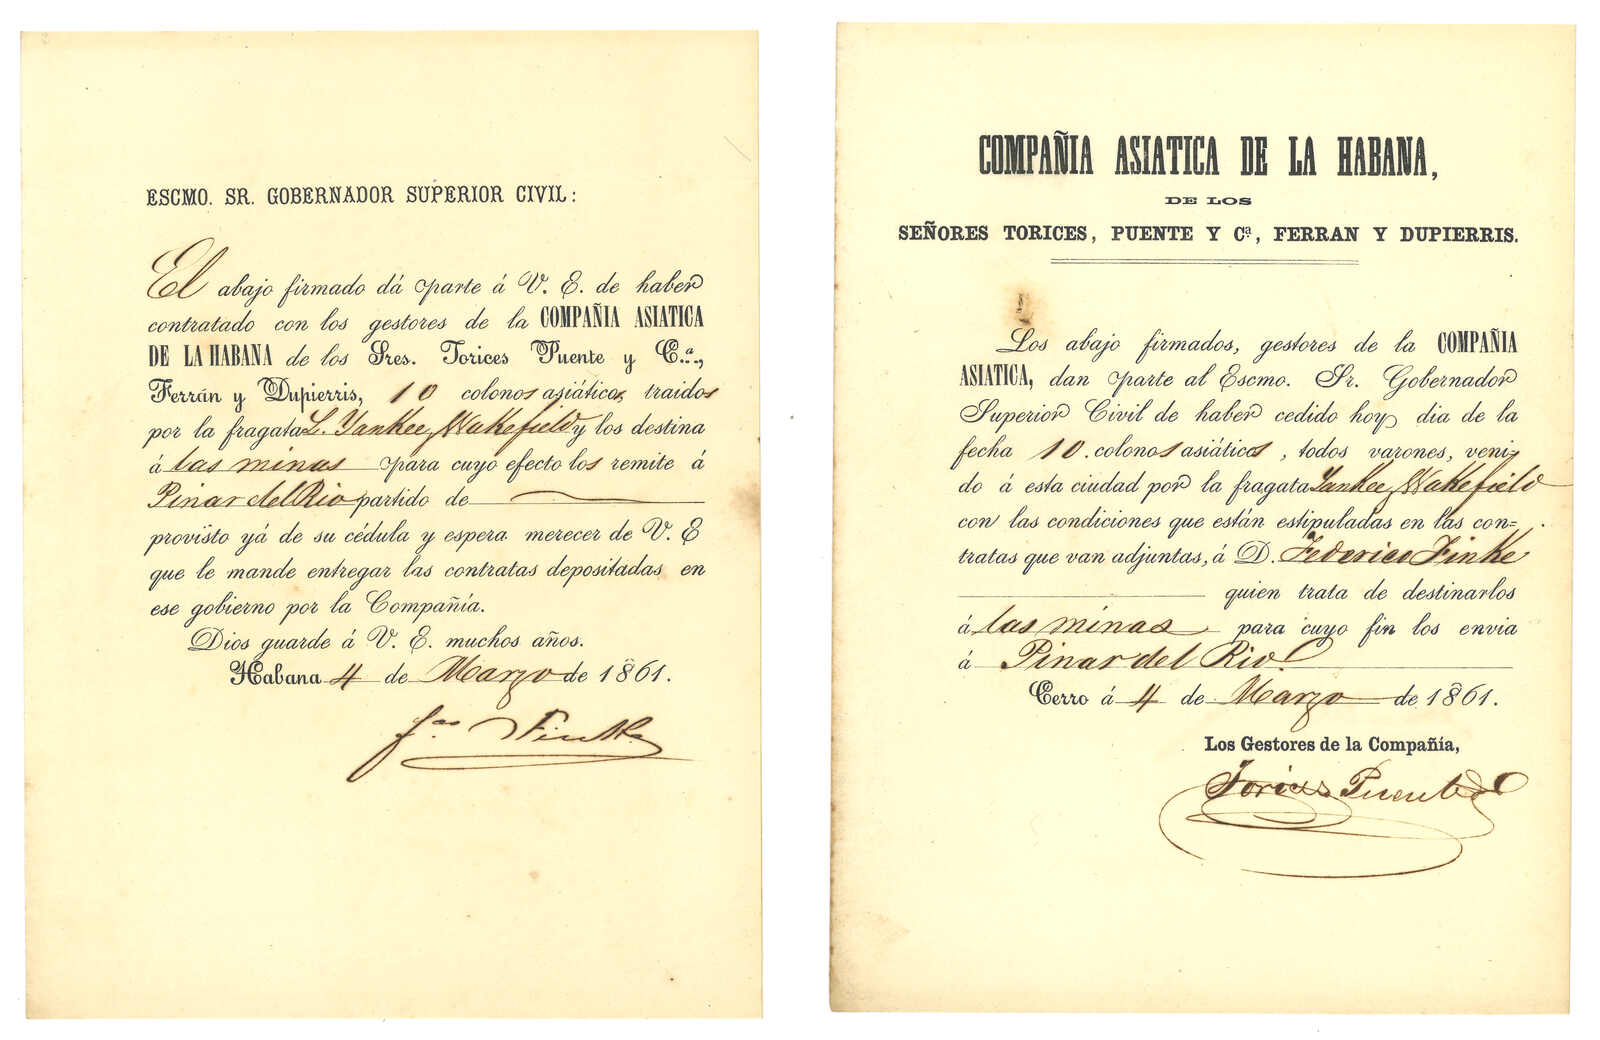 ESCMO. SR. GOBERNADOR SUPERIOR CIVIL:
El abajo firmado dá parte á V. E. de haber
contratado con los gestores de la COMPAÑIA ASIATICA
DE LA HABANA de los Sres. Torices Puente y C.ª,
Ferrán y Dupierris, 10 colonos asiáticos, traidos
por la fragata L. Yankee, Wakefield y los destina
á las minas para cuyo efecto los remite á
Pinar del Rio partido de
provisto yá de su cédula y espera merecer de V. E
que le mande entregar las contratas depositadas en
ese gobierno por la Compañía.
Dios guarde á V. E. muchos años.
Habana 4 de Marzo de 1861.
Finke
COMPAÑIA ASIATICA DE LA HABANA,
DE LOS
SEÑORES TORICES, PUENTE Y Cª, FERRAN Y DUPIERRIS.
Los abajo firmados, gestores de la COMPAÑIA
ASIATICA, dan parte al Escmo. Sr. Gobernador
Superior Civil de haber cedido hoy dia de la
fecha 10. colonos asiáticos, todos varones, veni-
do á esta ciudad por la fragata Yankee, Wakefield
con las condiciones que están estipuladas en las con-
tratas que van adjuntas, á D. Federico Finke
quien trata de destinarlos
á las minas para cuyo fin los envia
á Pinar del Rio.
Cerro á 4 de Marzo de 1861.
Los Gestores de la Compañía,
Torices Puente